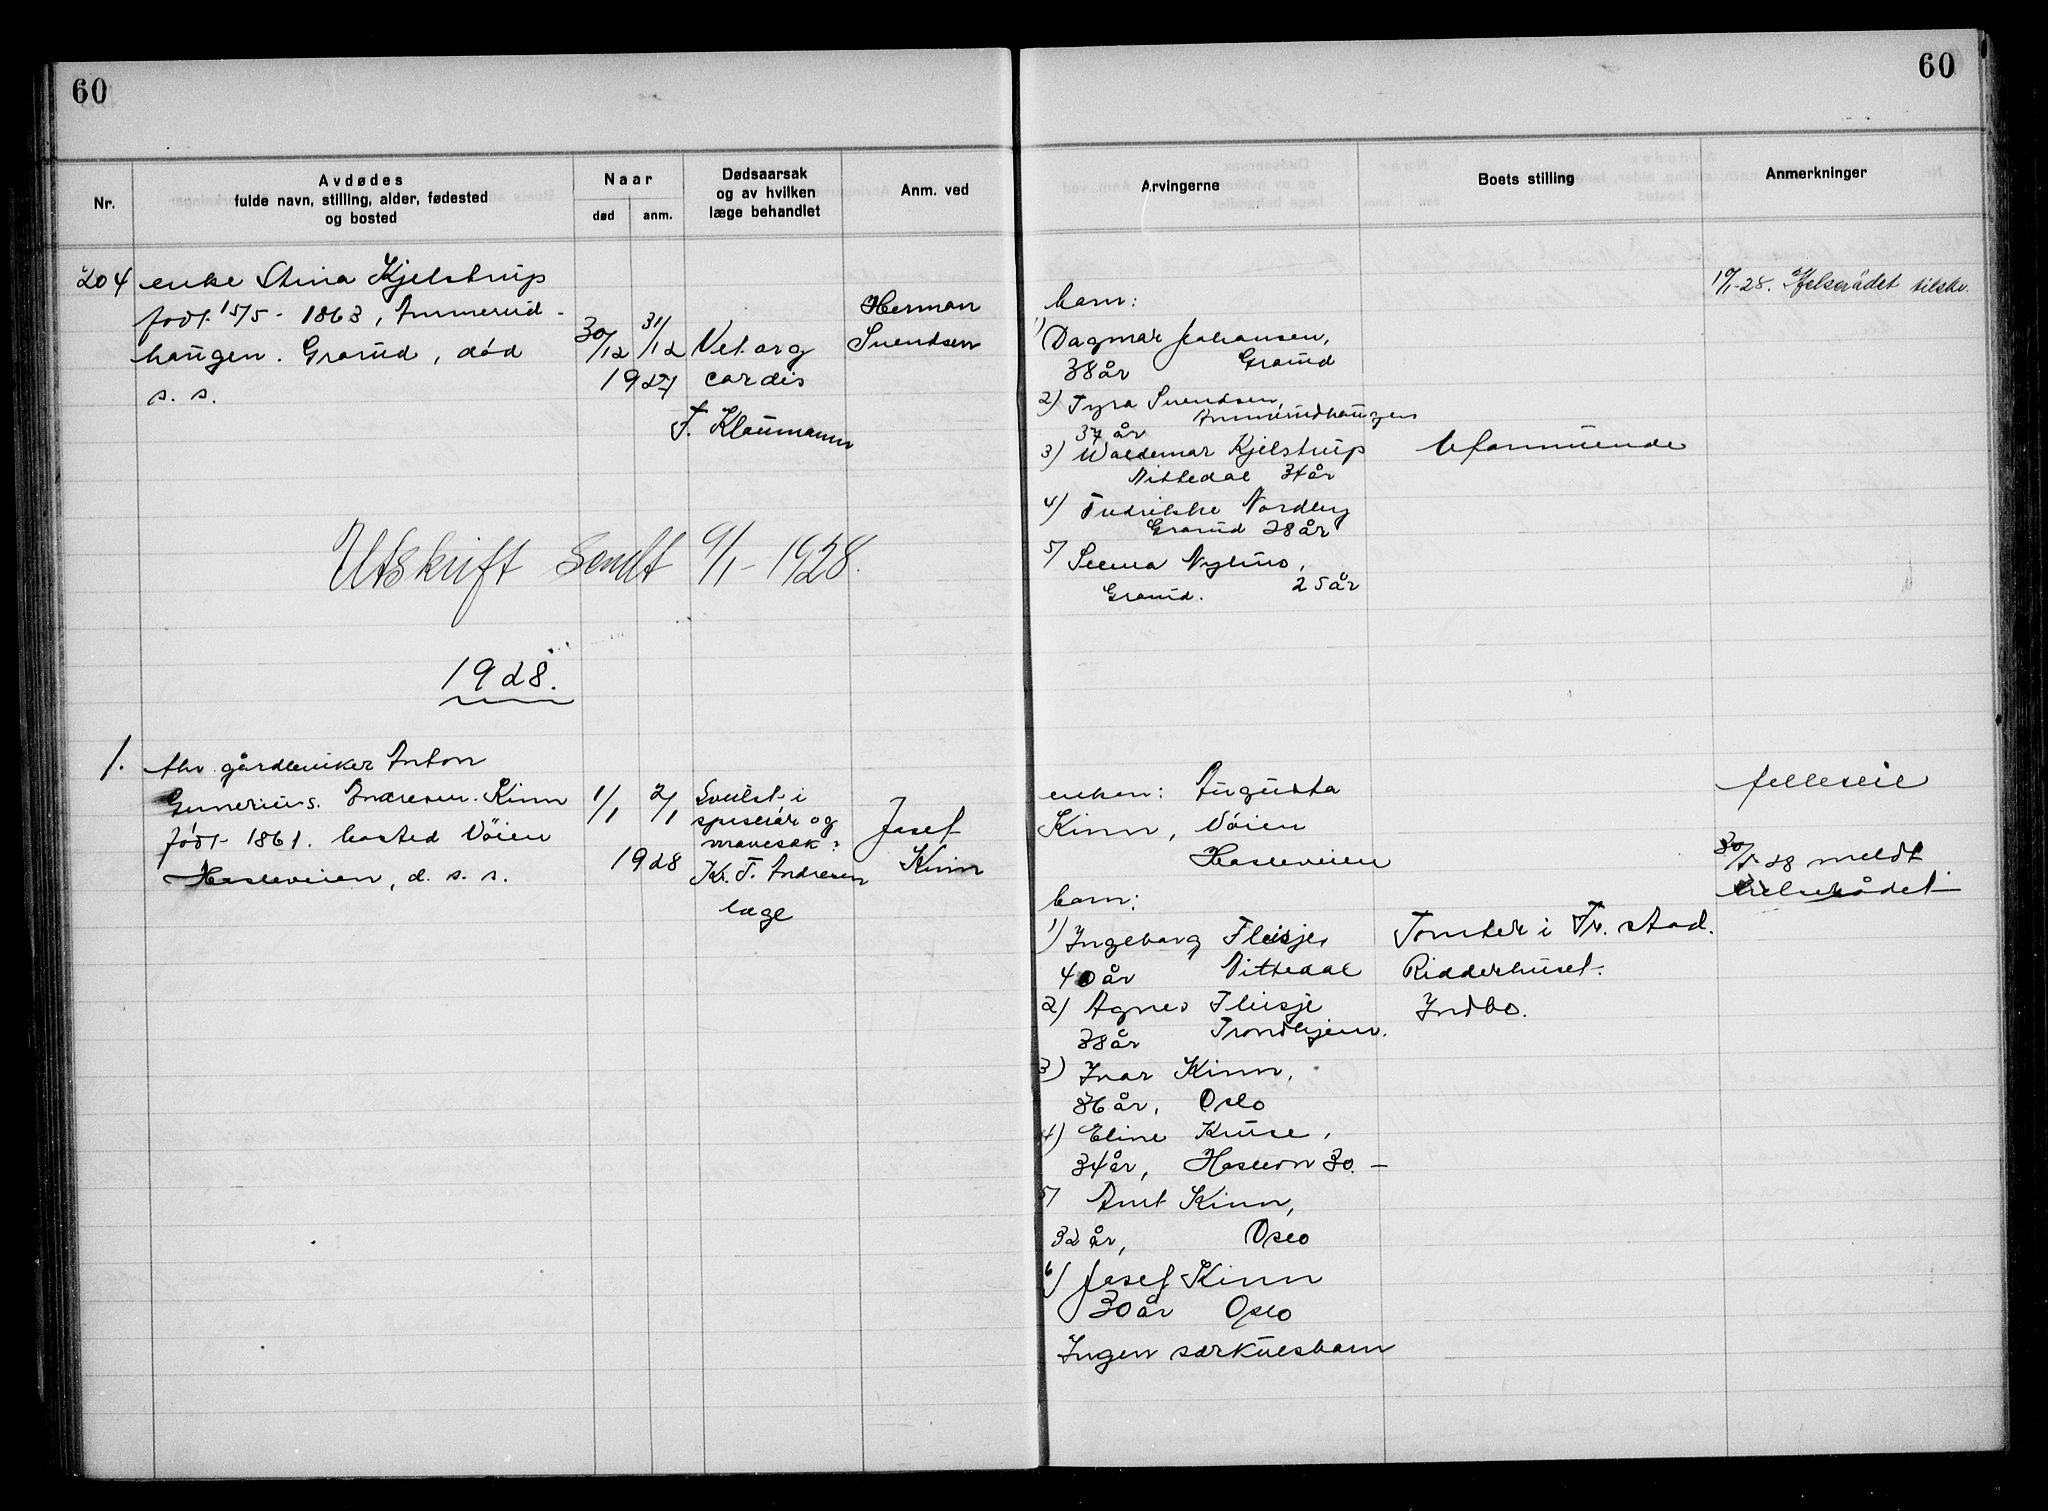 60
60
Nr.
Avdødes
fulde navn, stilling, alder, fødested
og bosted
Naar
død
anm.
Dødsaarsak
og av hvilken
læge behandlet
Anm. ved
Arvingerne
Boets stilling
Anmerkninger
204
enke Stina Kjelstrup
født 15/5 - 1863, Ammerud-
haugen. Grorud, død
s. s.
30/12 31/12
1927
Vit. org
cordis
F. Klaumann
Herman
Svendsen
barn:
1) Dagmar Johansen,
38 år Grorud
2) Tyra Svendsen,
Ammerudhaugen
37 år
3) Waldemar Kjelstrup
Nittedal 34 år
4) Fredrikke Nordby
Grorud 28 år
5)
Grorud. 25 år
Uformuende
Utskrift Sendt 9/1 - 1928.
1928.
1.
fhv. gårdbruker Anton
Gunerius. Andresen. Kinn
født 1861. bosted Vøien
Hasleveien, d. s. s.
1/1 2/1
1928
Svulst i
spiserør og
mavesæk.
Kr. F. Andresen
læge
Josef
Kinn
enken: Augusta
Kinn, Vøien
Hasleveien
barn:
1) Ingeborg Fleisje,
40 år Nittedal
2) Agnes Fleisje
38 år Trondhjem.
3) Ivar Kinn,
36 år, Oslo
4) Eline Kruse,
34 år, 30. -
5) Arnt Kinn,
32 år, Oslo
6) Josef Kinn
30 år Oslo
Ingen særkulsbarn
Tomter i Fr. stad.
Ridderhuset.
Indbo.
felleseie
28 meldt